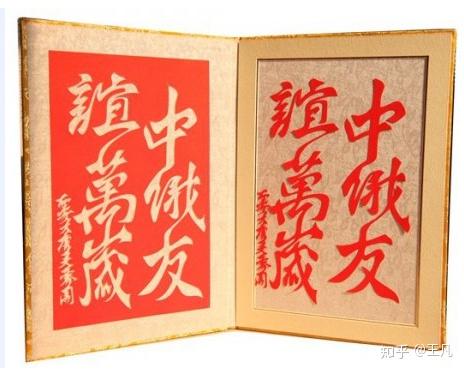 中俄友
誼萬歲
中俄友
誼萬歲
知乎 @王凡